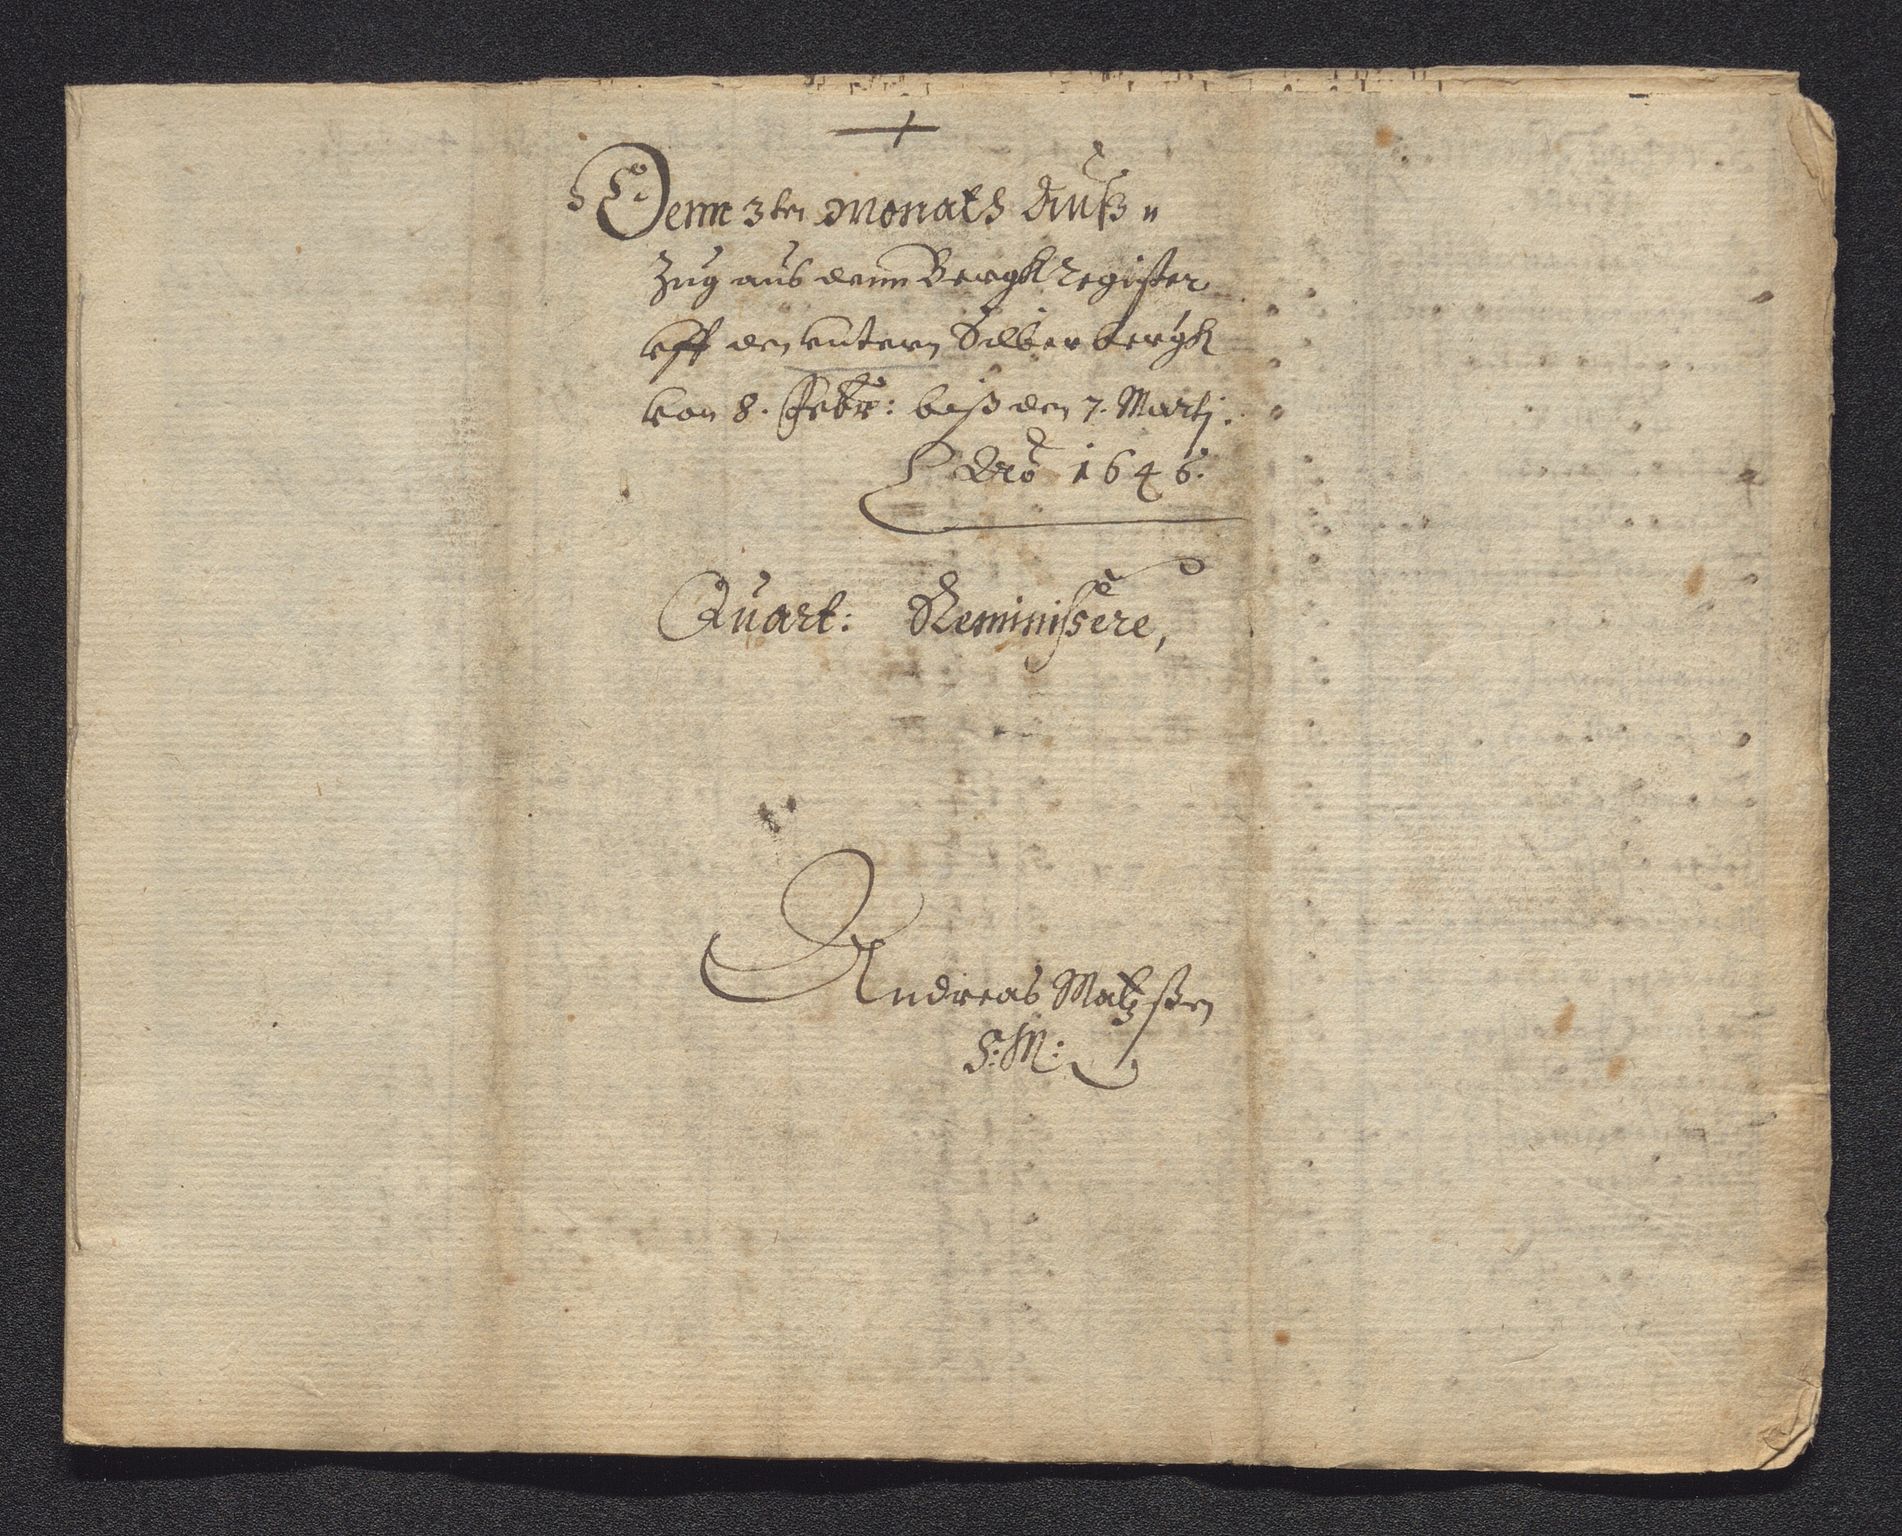 Denn 3ten Monats Auß⸗
zug aus denn Bergk Register
vff den vntern Silberbergk
von 8. Febr: biß den 7. Martj.
Año 1646.
Quart: Reminißere,
Andreas Matzßen
S:M: